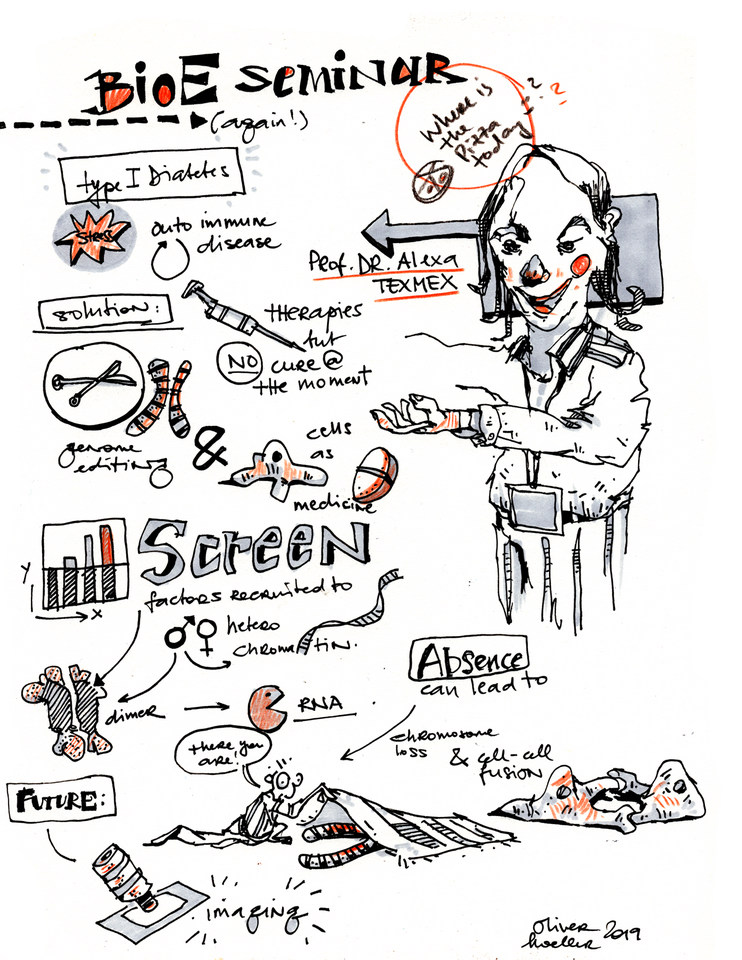 BioE SEMINAR
(again!)
Where is
the
Pizza
today
???
type I Diabetes
Stress
auto immune
disease
Prof. DR. Alexa
TEXMEX
solution:
THERAPIES
but
NO CURE @
THE MOMENT
genome
editing
&
cells
as
medicine
SCREEN
Y
X
factors RECRUITED to
hetero
CHROMATIN.
dimer
RNA
Absence
can lead to
chromosome
loss
& cell-cell
FUSION
there you
are!
FUTURE:
imaging
oliver
hoeller 2019